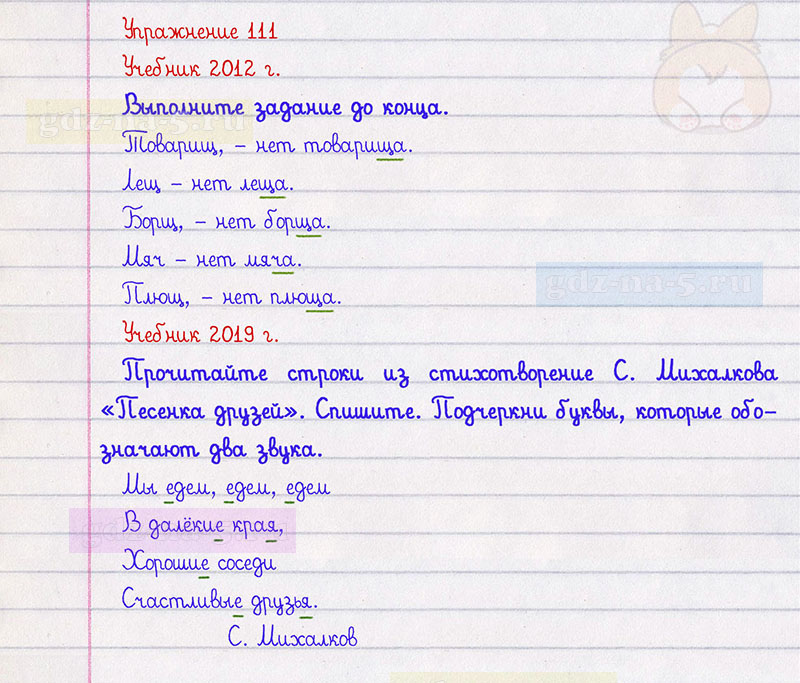 Упражнение 111
Учебник 2012 г.
Выполните задание до конца.
Товарищ, – нет товарища.
Лещ – нет леща.
Борщ, – нет борща.
Мяч – нет мяча.
Плющ, – нет плюща.
Учебник 2019 г.
Прочитайте строки из стихотворение С. Михалкова
«Песенка друзей». Спишите. Подчеркни буквы, которые обо-
значают два звука.
Мы едем, едем, едем
В далёкие края,
Хорошие соседи
Счастливые друзья.
С. Михалков
gdz-na-5.ru
gdz-na-5.ru
gdz-na-5.ru